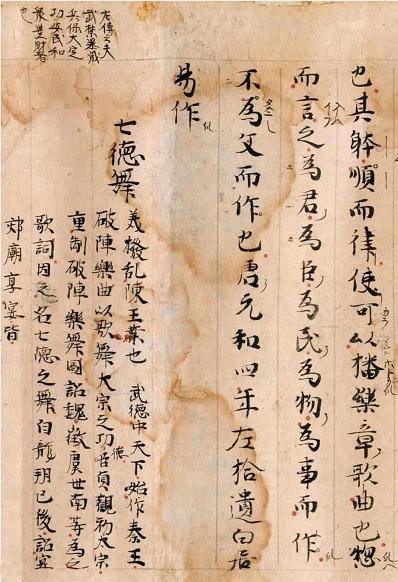 也其躰順而律使可以播樂章歌曲也惣
而言之為君為臣為民為物為事而作
不為文而作也唐元和四年左拾遺白居
易作
七德舞
義撥乱陳王業也 武德中天下始作秦王
破陣樂曲以歌舞大宗之功德臣貞觀初大宗
重制破陣樂舞圖詔魏徵虞世南等為之
歌詞因之名七德之舞自龍朔已後詔宜
郊廟享宴皆
左傳云夫
武禁暴戢
兵保大定
功安民和
衆豊財者
也